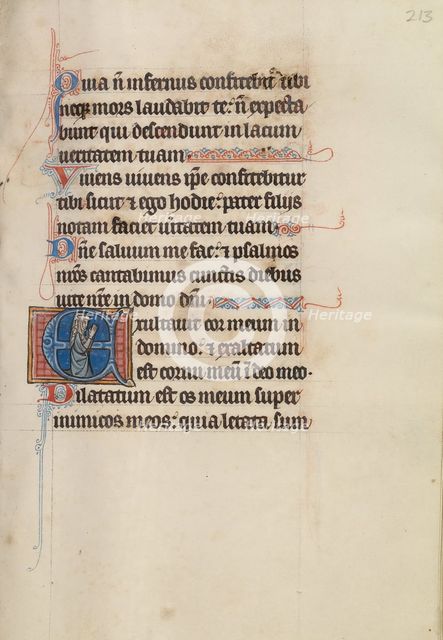 213
Quia ñ infernus confitebit᷑ tibi
neq; mors laudabit te: ñ expecta
bunt qui descendunt in lacum
ueritatem tuam.
Viuens uiuens ip̃e confitebitur
tibi sicut & ego hodie: pater filijs
notam faciet ũitatem tuam.
Dñe saluum me fac: & psalmos
ñros cantabimus cunctis diebus
uite nr̃e in domo dñi.
Exultauit cor meum in
domino: & exaltatum
est cornu meũ ĩ deo meo.
Dilatatum est os meum super
inimicos meos: quia letata sum
Heritage Heritage
Heritage Heritage